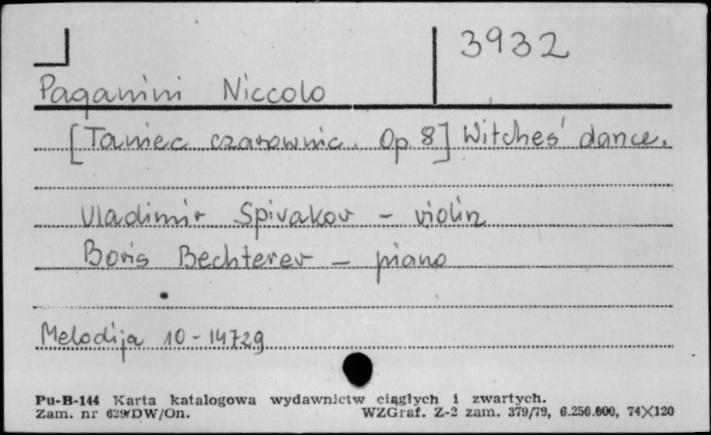 3932
Paganini Niccolo
[Taniec czarownic. Op. 8] Witches' dance.
Vladimir Spivakov - violin
Boris Bechterev - piano
Melodija 10-14729
Pu-B-144 Karta katalogowa wydawnictw ciągłych i zwartych.
Zam. nr 629/DW/On. WZGraf. Z-2 zam. 379/79, 6.250.000, 74×120